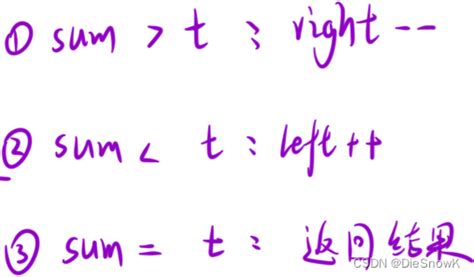 ① sum > t : right --
② sum < t : left ++
③ sum = t : 返回结果
CSDN @DieSnowK